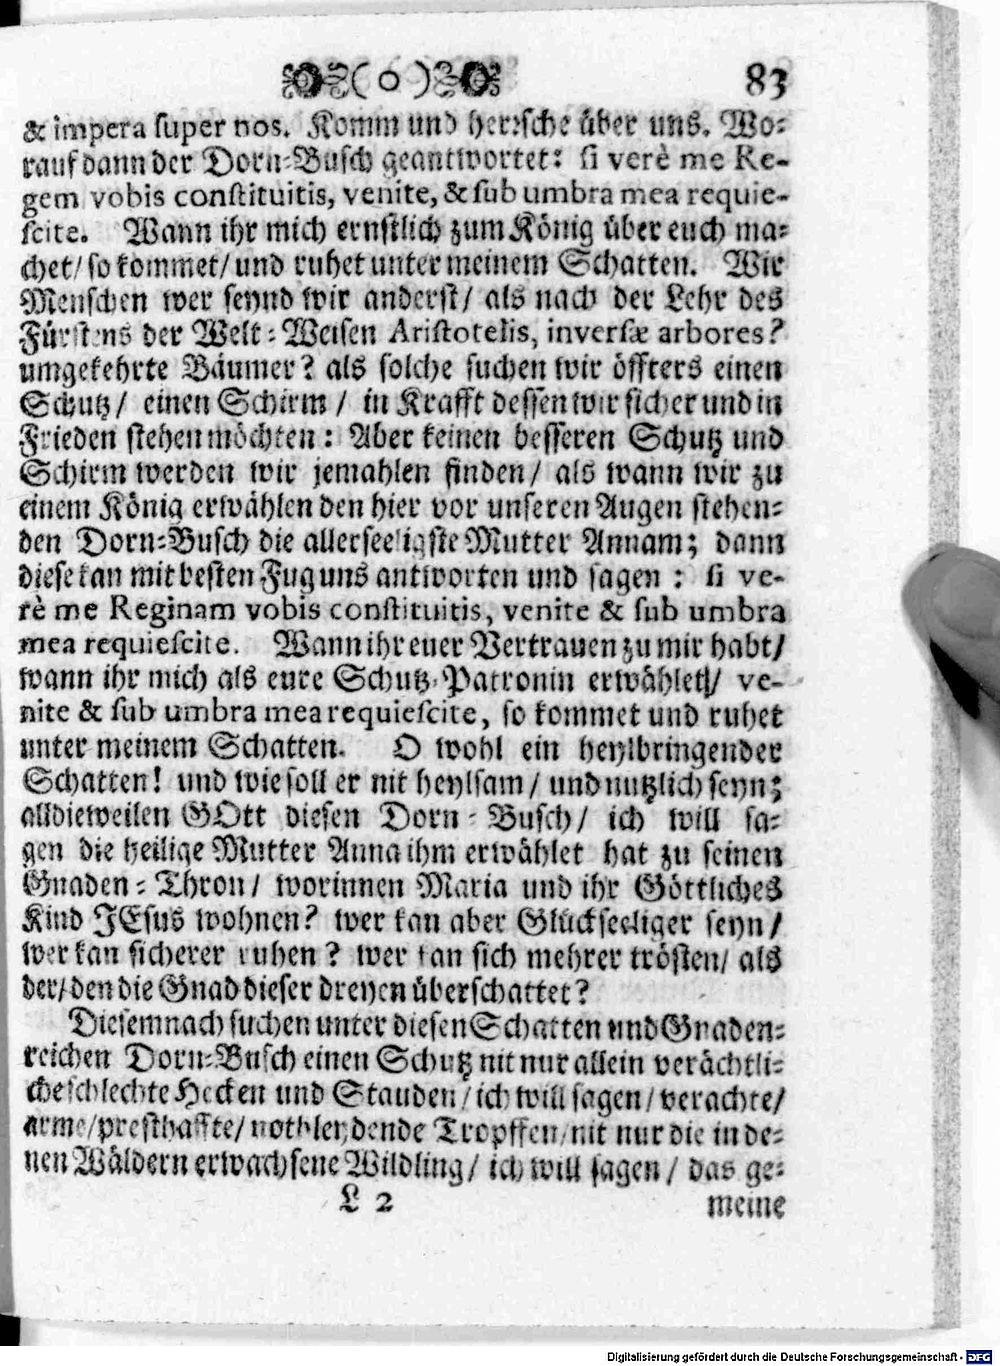 ( o ) 83
& impera super nos. Komm und herrsche über uns. Wo-
rauf dann der Dorn-Busch geantwortet: si verè me Re-
gem vobis constituitis, venite, & sub umbra mea requie-
scite. Wann ihr mich ernstlich zum König über euch ma-
chet/ so kommet/ und ruhet unter meinem Schatten. Wir
Menschen wer seynd wir anderst/ als nach der Lehr des
Fürstens der Welt-Weisen Aristotelis, inversæ arbores?
umgekehrte Bäumer? als solche suchen wir öffters einen
Schutz/ einen Schirm/ in Krafft dessen wir sicher und in
Frieden stehen möchten: Aber keinen besseren Schutz und
Schirm werden wir jemahlen finden/ als wann wir zu
einem König erwählen den hier vor unseren Augen stehen-
den Dorn-Busch die allerseeligste Mutter Annam; dann
diese kan mit besten Fug uns antworten und sagen: si ve-
rè me Reginam vobis constituitis, venite & sub umbra
mea requiescite. Wann ihr euer Vertrauen zu mir habt/
wann ihr mich als eure Schutz-Patronin erwählet/ ve-
nite & sub umbra mea requiescite, so kommet und ruhet
unter meinem Schatten. O wohl ein heylbringender
Schatten! und wie soll er nit heylsam/ und nutzlich seyn;
alldieweilen GOtt diesen Dorn-Busch/ ich will sa-
gen die heilige Mutter Anna ihm erwählet hat zu seinen
Gnaden-Thron/ worinnen Maria und ihr Göttliches
Kind JEsus wohnen? wer kan aber Glückseeliger seyn/
wer kan sicherer ruhen? wer kan sich mehrer trösten/ als
der/ den die Gnad dieser dreyen überschattet?
Diesemnach suchen unter diesen Schatten und Gnaden-
reichen Dorn-Busch einen Schutz nit nur allein verächtli-
che schlechte Hecken und Stauden/ ich will sagen/ verachte/
arme/ presthaffte/ nothleydende Tropffen/ nit nur die in de-
nen Wäldern erwachsene Wildling/ ich will sagen/ das ge-
L 2 meine
Digitalisierung gefördert durch die Deutsche Forschungsgemeinschaft - DFG